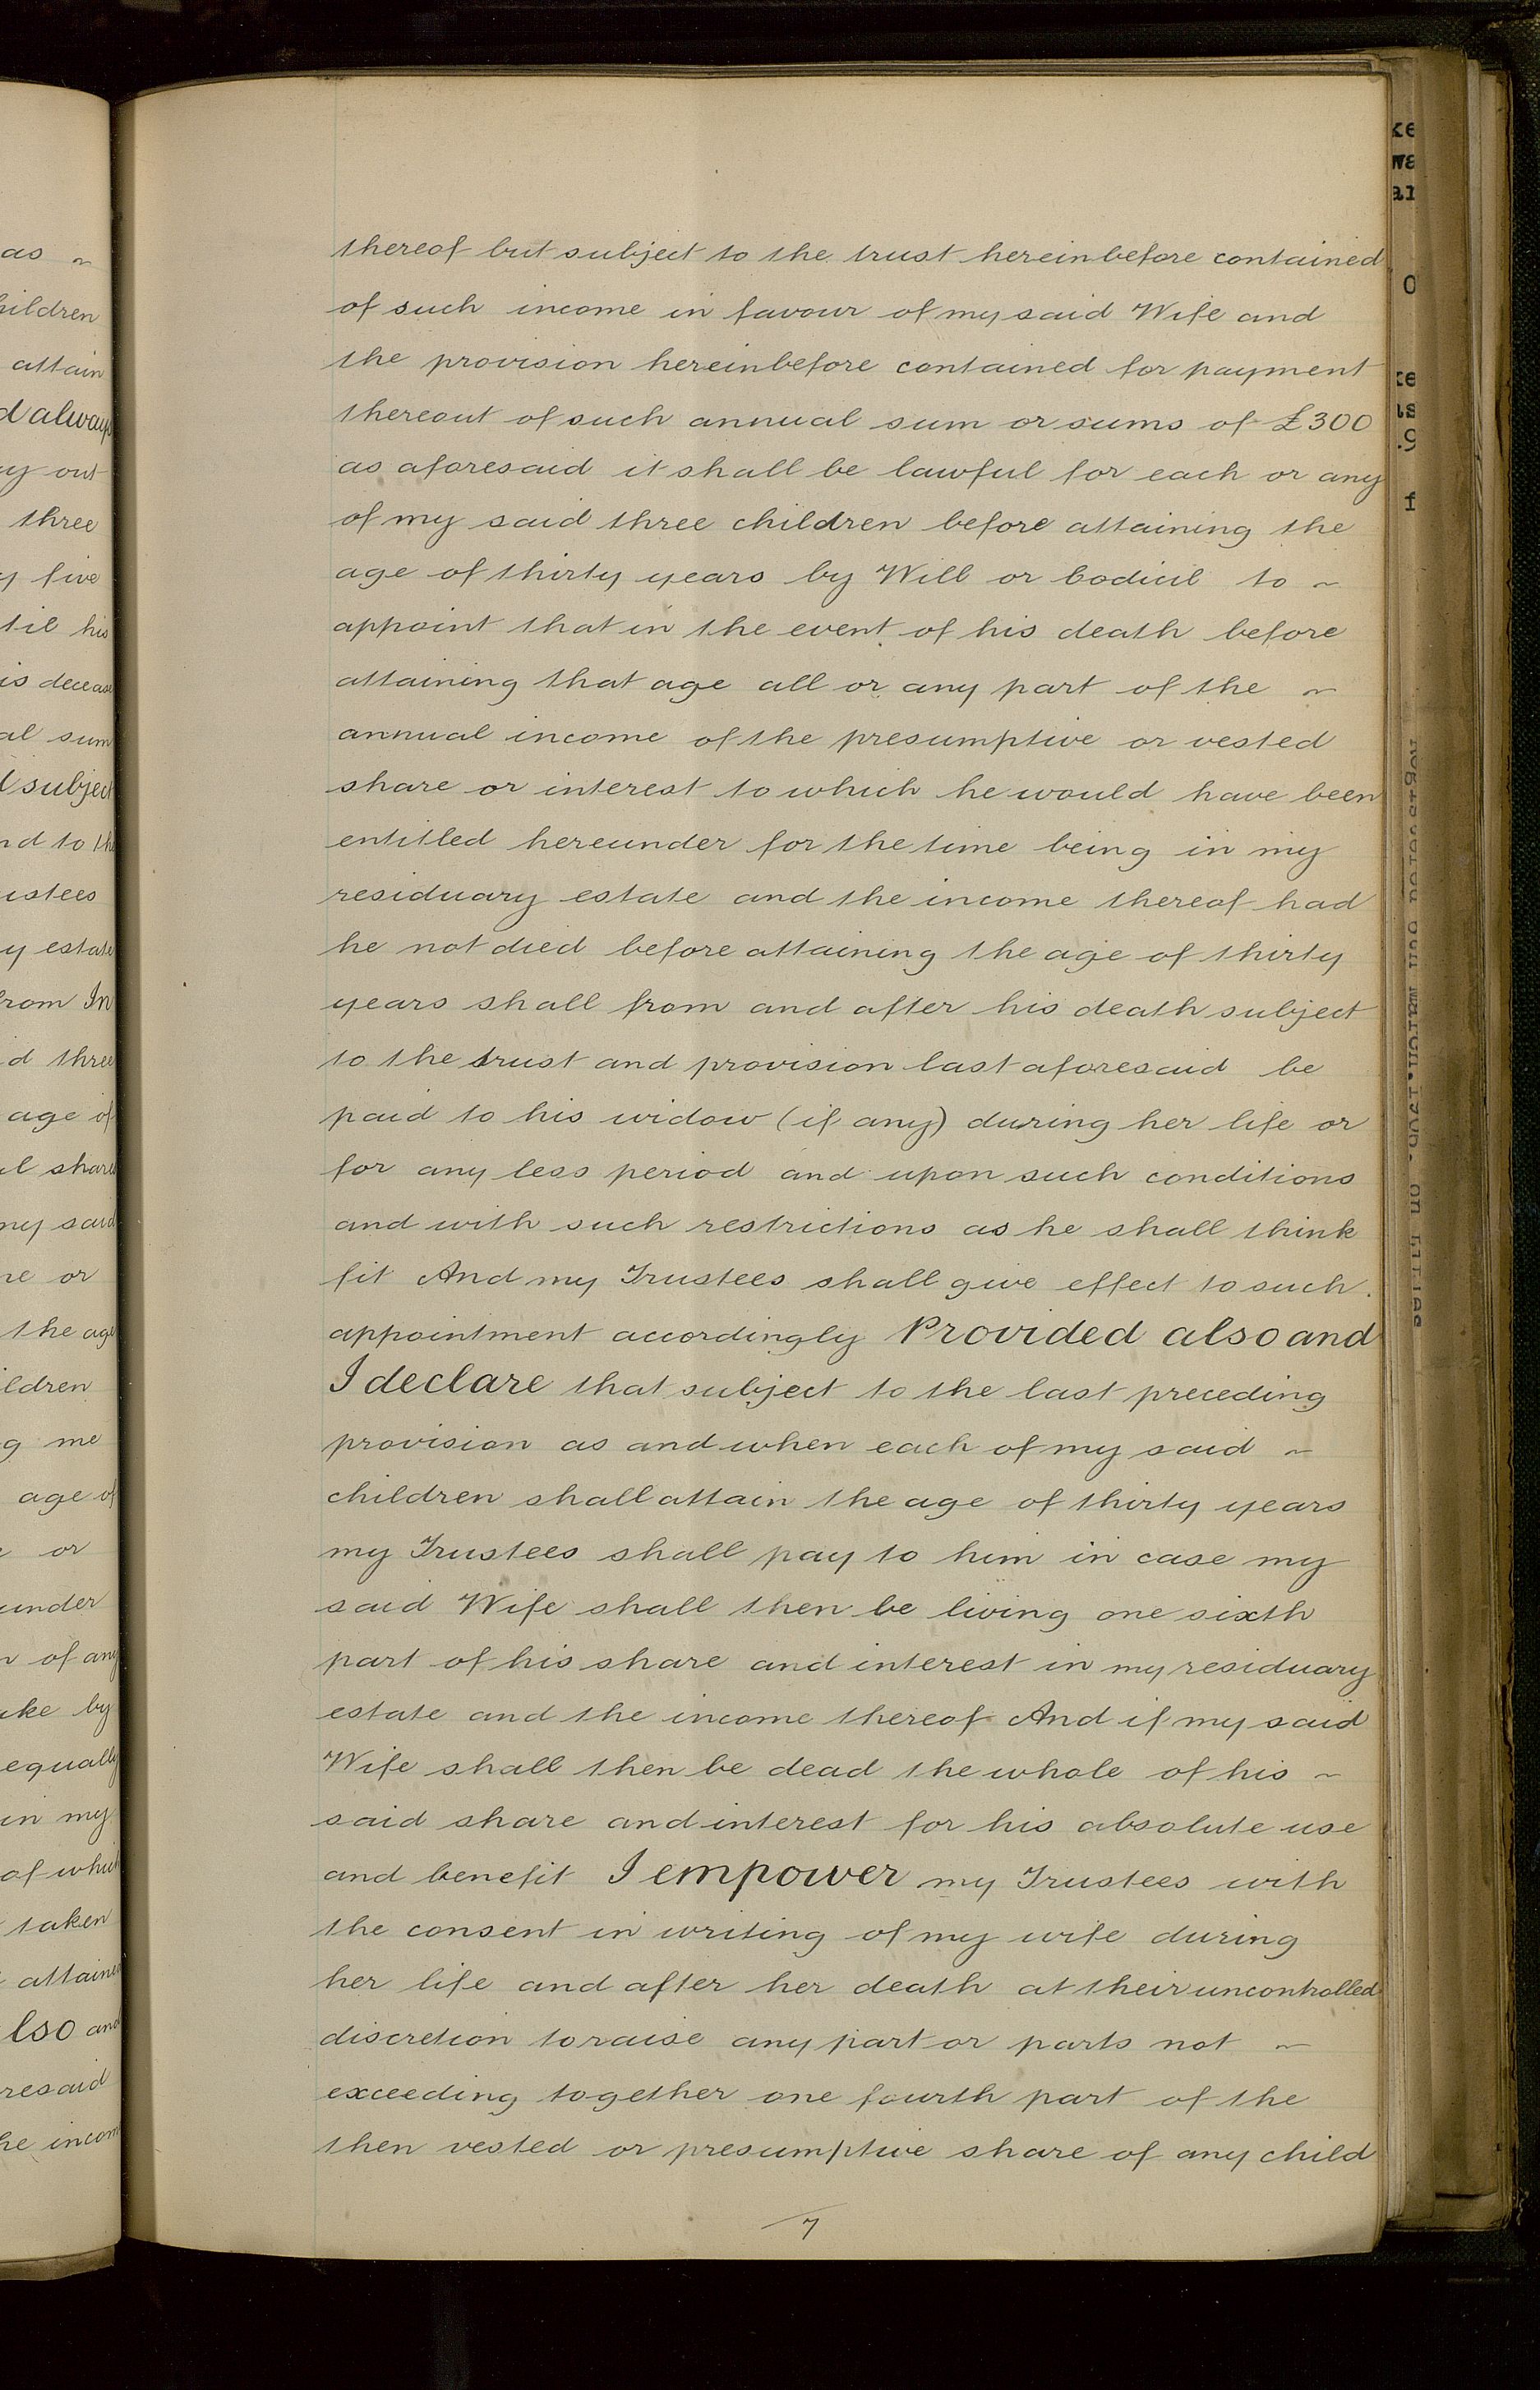 thereof but subject to the trust hereinbefore contained
of such income in favour of my said Wife and
the provision hereinbefore contained for payment
thereout of such annual sum or sums of £300
as aforesaid it shall be lawful for each or any
of my said three children before attaining the
age of thirty years by Will or Codicil to ~
appoint that in the event of his death before
attaining that age all or any part of the ~
annual income of the presumptive or vested
share or interest to which he would have been
entitled hereunder for the time being in my
residuary estate and the income thereof had
he not died before attaining the age of thirty
years shall from and after his death subject
to the trust and provision last aforesaid be
paid to his widow (if any) during her life or
for any less period and upon such conditions
and with such restrictions as he shall think
fit And my Trustees shall give effect to such
appointment accordingly Provided also and
I declare that subject to the last preceding
provision as and when each of my said ~
children shall attain the age of thirty years
my Trustees shall pay to him in case my
said Wife shall then be living one sixth
part of his share and interest in my residuary
estate and the income thereof And if my said
Wife shall then be dead the whole of his ~
said share and interest for his absolute use
and benefit I empower my Trustees with
the consent in writing of my wife during
her life and after her death at their uncontrolled
discretion to raise any part or parts not ~
exceeding together one fourth part of the
then vested or presumptive share of any child
7
as ~
attain
always
out
three
five
his
sum
subject
to the
estate
In
three
age of
share
said
or
the age
me
age of
or
under
of any
by
equally
in my
taken
and